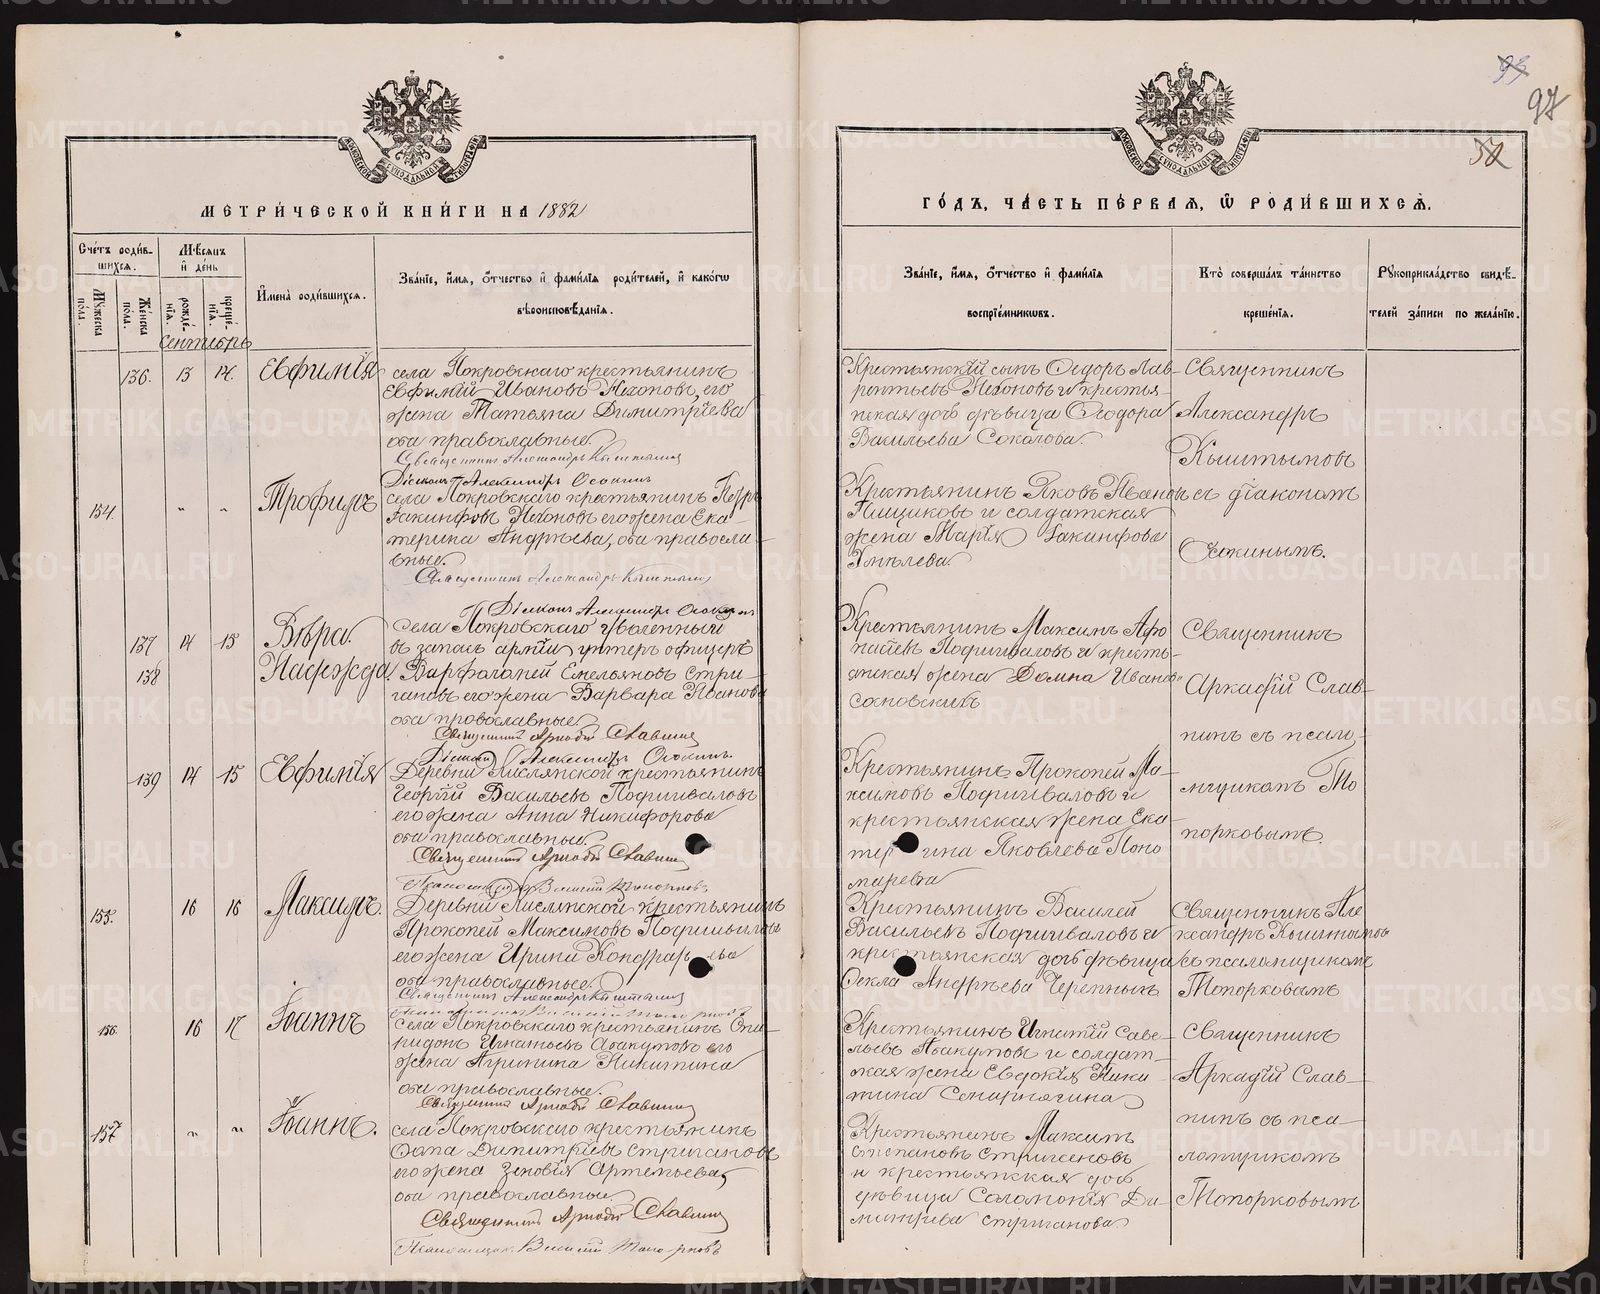 93
97
52
МОСКОВСКОЙ СѴНОДАЛЬНОЙ ТИПОГРАФІИ
МЕТРИ́ЧЕСКОЙ КНИ́ГИ НА 1882
Сче́тъ роди́в-
шихся.
Мꙋ́жеска по́ла.
Же́нска по́ла.
Мѣ́сяцъ
и҆ де́нь
рожде́-
нїя.
креще́-
нїя.
И҆мена̀ роди́вшихся.
Зва́нїе, и҆́мя, ѻ҆́тчество и҆ фами́лїя роди́телей, и҆ како́гѡ
вѣроисповѣ́данїя.
Сентябрь
136. 13 14. Евфимія
села Покровскаго крестьянинъ
Евфимій Ивановъ Нехоновъ, его
жена Татьяна Димитріева
оба православные.
Священникъ Александръ Кыштымовъ
Діаконъ Александръ Осокинъ
154. " " Трофимъ
села Покровскаго крестьянинъ Петръ
Іакинфовъ Нехоновъ его жена Ека-
терина Андреѣва, оба правосла-
вные.
Священникъ Александръ Кыштымовъ
Діаконъ Александръ Осокинъ
137 14 15 Вѣра.
138 Надежда.
села Покровскаго уволенный
въ запасъ арміи унтеръ офицеръ
Варфоломей Емельяновъ Стри-
гановъ его жена Варвара Иванова
оба православные.
Священникъ Аркадій Славнинъ
Діаконъ Александръ Осокинъ.
139 14 15 Евфимія
Деревни крестьянинъ
Георгій Васильевъ Подшиваловъ
его жена Анна Никифорова
оба православные.
Священникъ Аркадій Славнинъ
Псаломщикъ Василій Топорковъ
155. 16 16 Максимъ.
Деревни крестьянинъ
Прокопей Максимовъ Подшиваловъ
его жена Ирина
оба православные.
Священникъ Александръ Кыштымовъ
Псаломщикъ Василій Топорковъ
156. 16 17 Іоаннъ
села Покровскаго крестьянинъ Спи-
ридонъ Игнатьевъ Абакумовъ его
жена Агрипина Никитина
оба православные.
Священникъ Аркадій Славнинъ
157 " " Іоаннъ.
села Покровскаго крестьянинъ
Фома Димитріевъ Стригановъ
его жена Зеновія Артемьева,
оба православные.
Священникъ Аркадій Славнинъ
Псаломщикъ Василій Топорковъ
МОСКОВСКОЙ СѴНОДАЛЬНОЙ ТИПОГРАФІИ
ГО́ДЪ, ЧА́СТЬ ПЕ́РВАЯ, Ѡ҆ РОДИ́ВШИХСЯ.
Зва́нїе, и҆́мя, ѻ҆́тчество и҆ фами́лїя
воспрїе́мникѡвъ.
Кто̀ соверша́лъ та́инство
креще́нїя.
Рꙋкоприкла́дство свидѣ́-
телей за́писи по жела́нїю.
Крестьянскій сынъ Ѳедоръ Лав-
рентьевъ Нехоновъ и крестья-
нская дочь дѣвица Ѳеодора
Васильева Соколова.
Священникъ
Александръ
Кыштымовъ
съ діакономъ
Осокинымъ.
Крестьянинъ Яковъ Ивановъ
Пищиковъ и солдатская
жена Марія Іакинфова
Хмѣлева.
Крестьянинъ Максимъ Афо-
насьевъ Подшиваловъ и кресть-
янская жена Домна Иванова
Сосновскихъ
Священникъ
Аркадій Слав-
нинъ съ псало-
мщикомъ То
порковымъ.
Крестьянинъ Прокопей Ма-
ксимовъ Подшиваловъ и
крестьянская жена Ека-
терина Яковлева Поно
марева
Крестьянинъ Василей
Васильевъ Подшиваловъ и
крестьянская дочь дѣвица
Ѳекла Андреѣва Черепныхъ
Священникъ Але
ксандръ Кыштымовъ
съ псаломщикомъ
Топорковымъ
Крестьянинъ Игнатій Саве-
льевъ Абакумовъ и солдат-
ская жена Евдокія Ники-
тина
Священникъ
Аркадій Слав-
нинъ съ пса-
ломщикомъ
Топорковымъ
Крестьянинъ Максимъ
Степановъ Стригановъ
и крестьянская дочь
дѣвица Саломонія Ди-
митріева Стриганова
METRIKI.GASO-URAL.RU